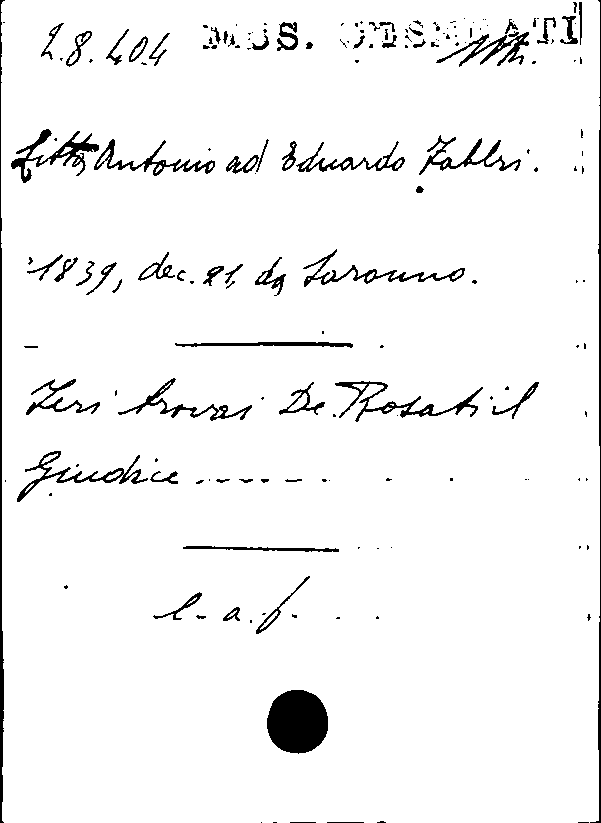 2.8.404 MSS. CESENATI
Litta Antonio ad Eduardo Fabbri.
1839, dec. 21, da Saronno.
Ieri trovai De Rosati il
Giudice ......
l. a. f.